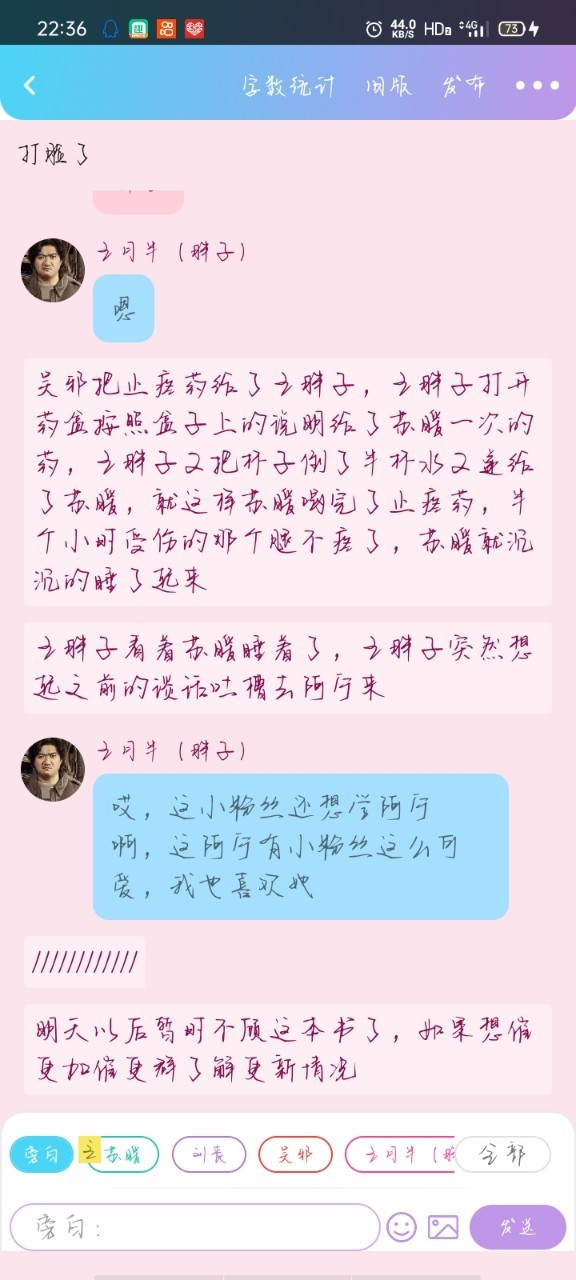 22:36
44.0
KB/S
HD
4G
73
字数统计
旧版
发布
打脸了
王月半(胖子)
嗯
吴邪把止疼药给了王胖子,王胖子打开
药盒按照盒子上的说明给了苏暖一次的
药,王胖子又把杯子倒了半杯水又递给
了苏暖,就这样苏暖喝完了止疼药,半
个小时受伤的那个腿不疼了,苏暖就沉
沉的睡了起来
王胖子看着苏暖睡着了,王胖子突然想
起之前的谈话吐槽去阿宁来
王月半(胖子)
哎,这小粉丝还想学阿宁
啊,这阿宁有小粉丝这么可
爱,我也喜欢她
////////////
明天以后暂时不顾这本书了,如果想催
更加催更群了解更新情况
旁白
主
苏暖
刘丧
吴邪
王月半(胖
全部
旁白:
发送